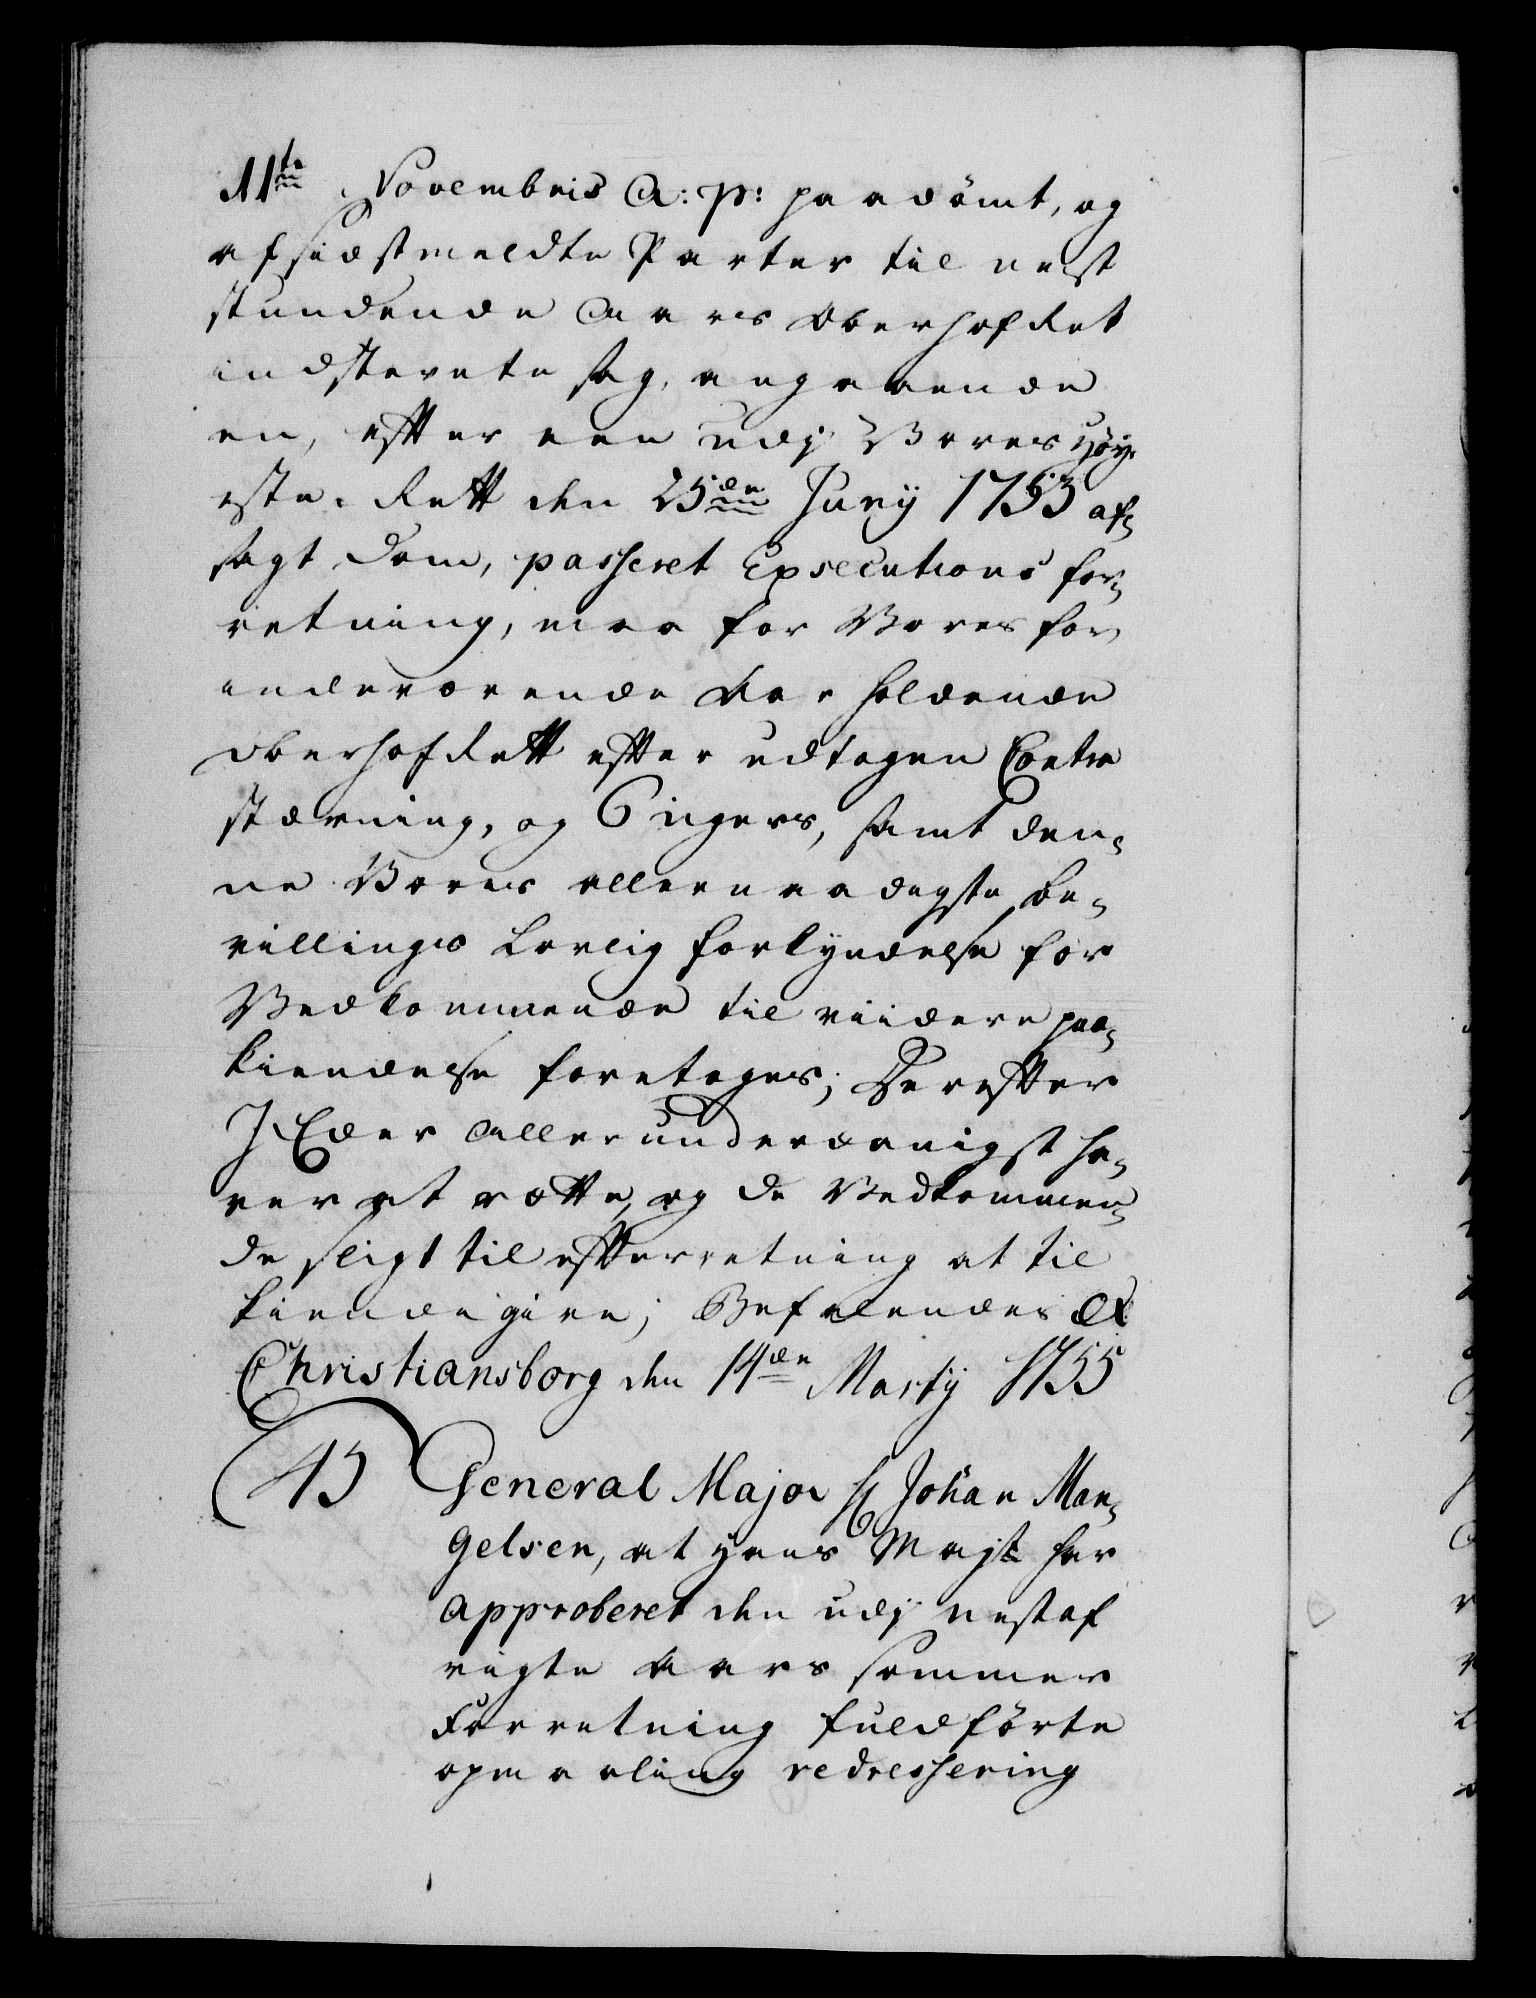 11te Novembris A: P: paadömt, og
af sidstmeldte Parter til nest
stundende Aars Oberhof Ret
indstevnte sag, angaaende
en, efter een udj Vores Höy¬
este-Rett den 25de Junij 1753 af¬
sagt Dom, passeret Executions for¬
retning, maa for Vores for
indeværende Aar holdende
Oberhof Rett efter udtagen Contra
stævning, og Bingers, samt den¬
ne Vores allernaadigste Be¬
villings Lovlig forkyndelse for
Vedkommende til viidere paa¬
kiendelse foretages; Derefter
I Eder allerunderdanigst ha¬
ver at rætte, og de Vedkommen¬
de sligt til efterretning at til
kiende give; Befalendes &
Christiansborg den 14de Martij 1755
45 General Major H Johan Man¬
gelsen, at Hans Mayt har
approberet den udj nestaf
vigte Aars Sommer
Forretning fuldförte
opmaaling redressering